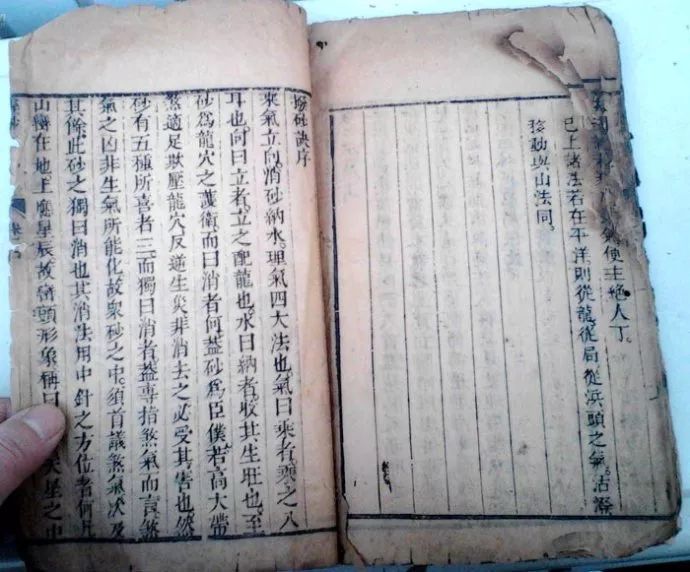 使主絶人丁。
已上諸法若在平洋。則從龍。從局從浜頭之氣。沾
移動與山法同。
撥砂訣序
乘氣立向。消砂納水。理氣四大法也。氣曰乘者。乘之八
耳也。向曰立者。立之配龍也。水曰納者。收其生旺也。至
砂爲龍穴之護衛。而曰消者何。葢砂爲臣僕。若高大帶
煞適足欺壓龍穴反逆生災。非消去之必受其害也。然
砂有五種所喜者三。而獨曰消者。葢專指煞氣而言。煞
氣之凶非生氣所能化。故衆砂之中。須首議煞氣次及
其餘。此砂之獨曰消也。其消法用中針之方位者何
山巒在地上應星辰。故巒頭形象。稱曰 天星之中